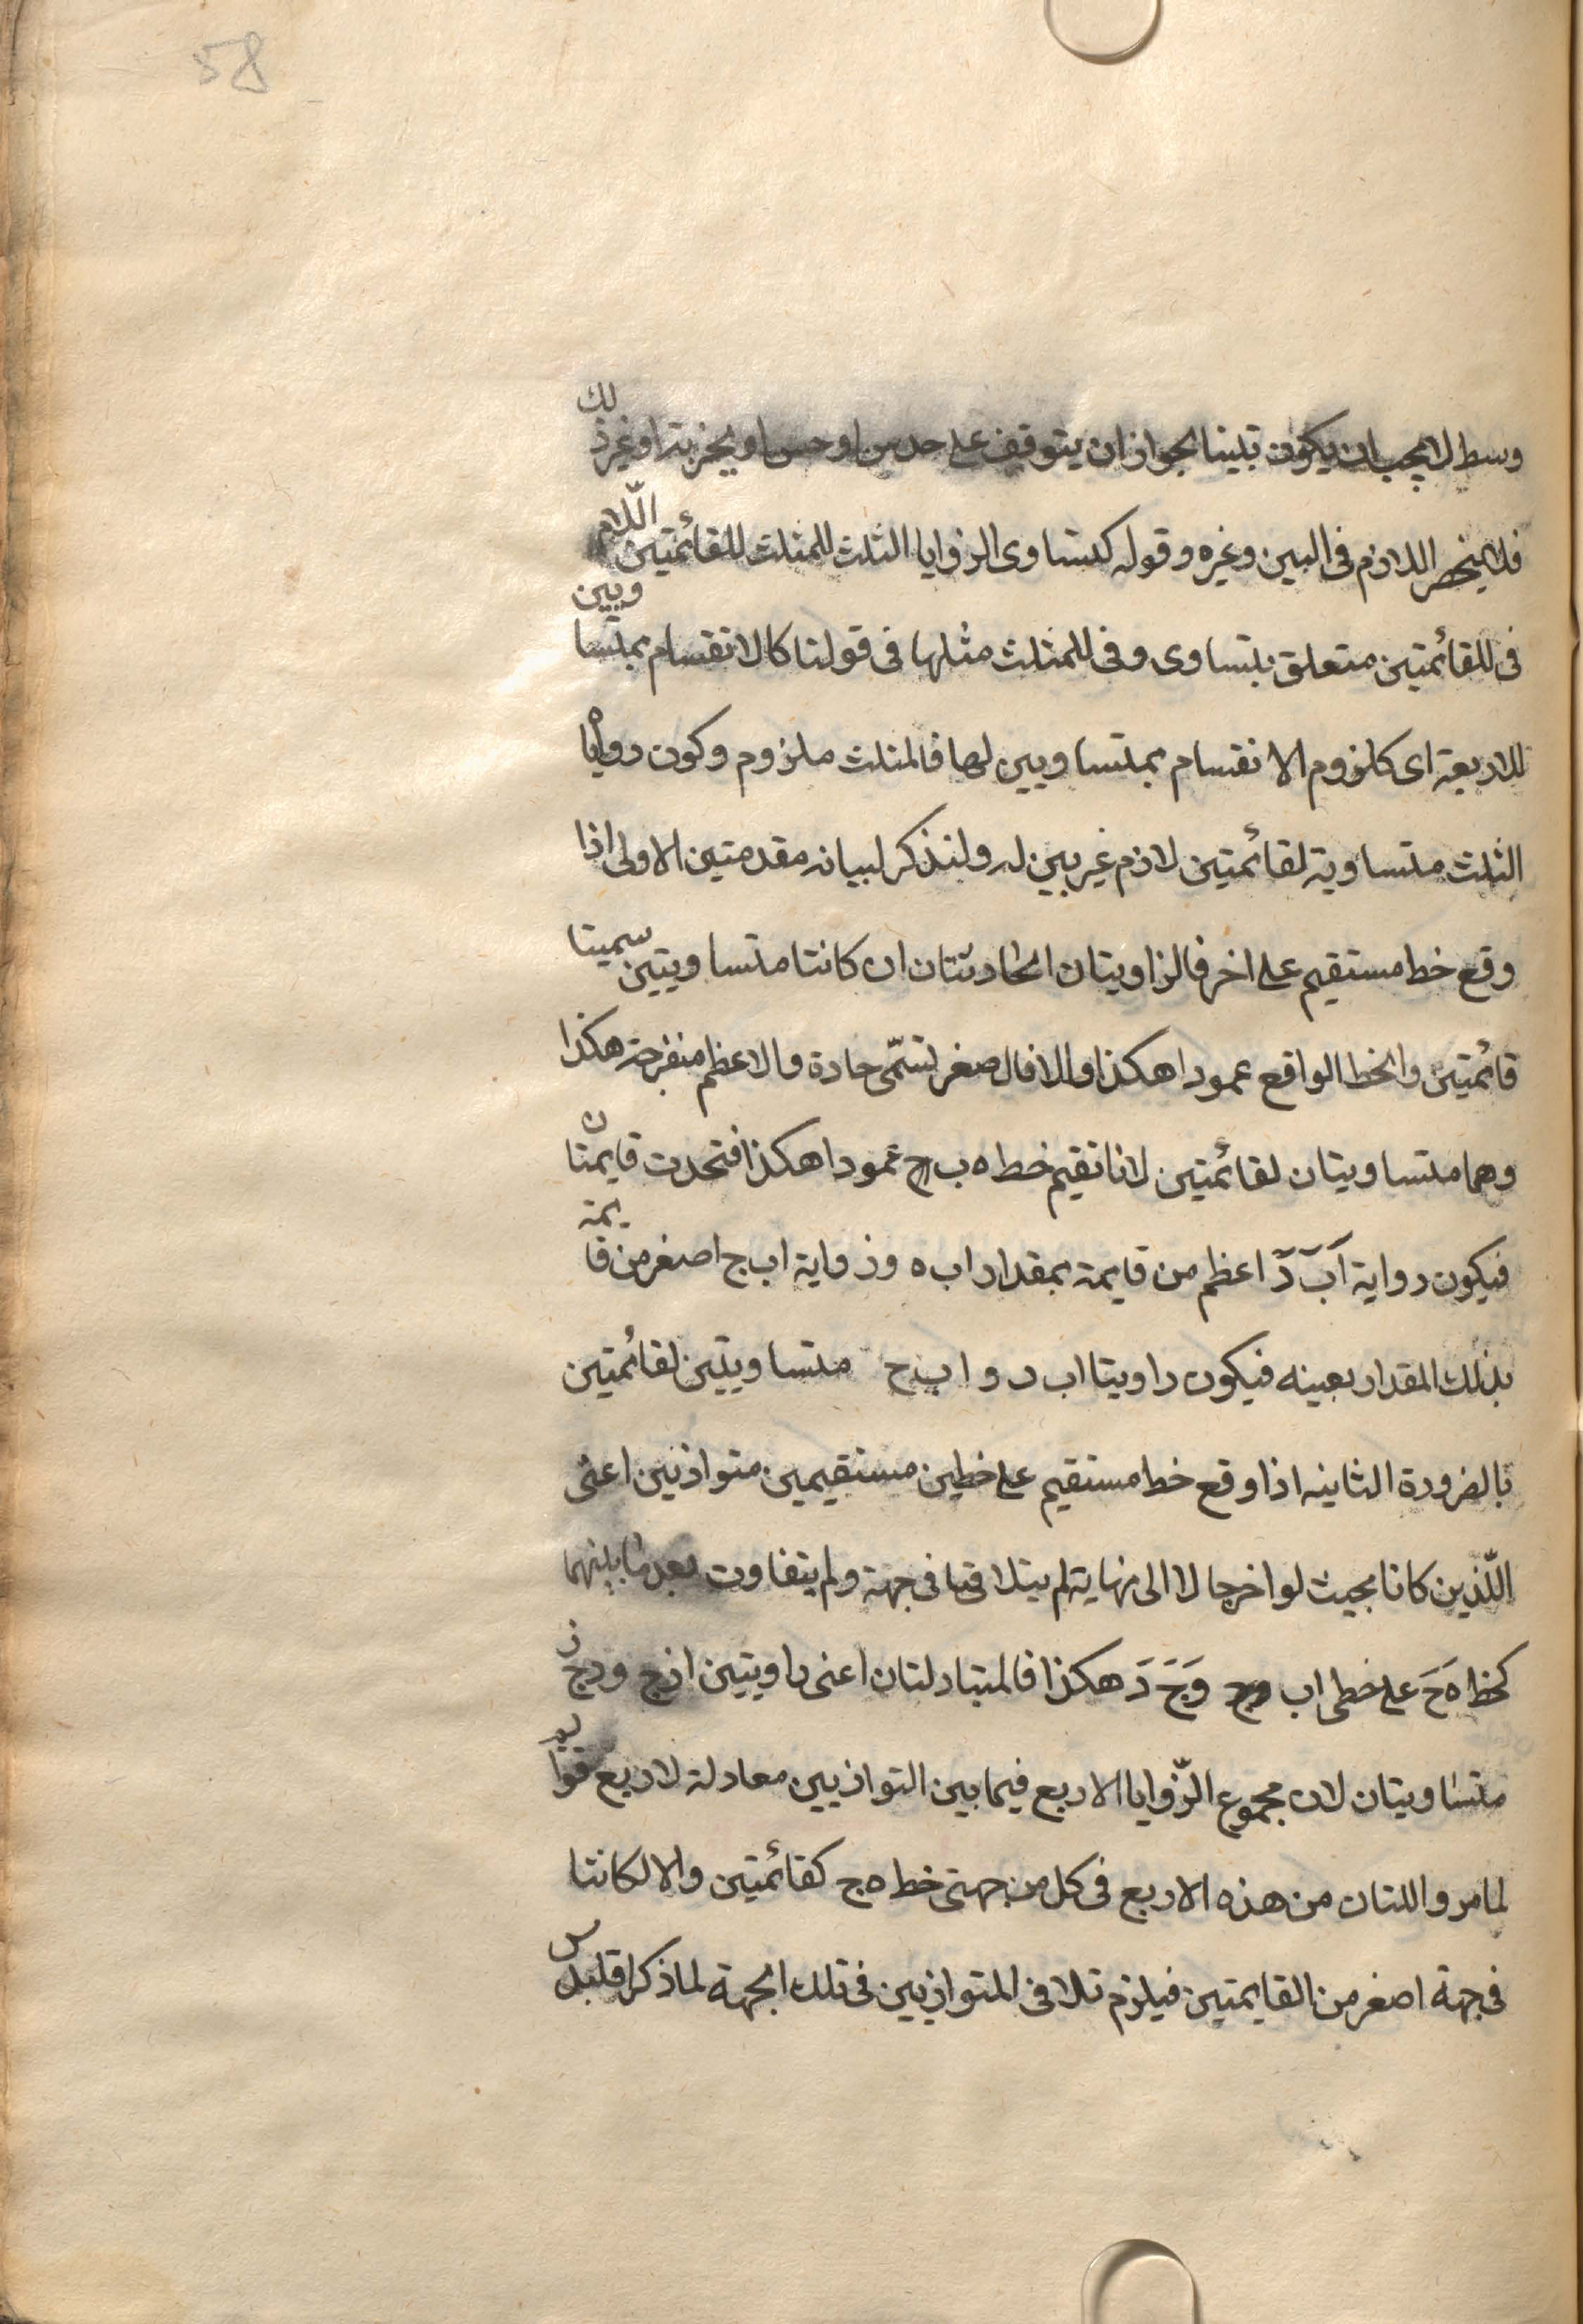 58
وسط لا يجب ان يكون تبينا لجواز ان يتوقف على حدس او حس او يجزبة او غير ذلك
فلا ينحصر اللازم فى البين وغيره وقوله كتساوى الزوايا الثلث للمثلث للقائمتين اللام
فى للقائمتين متعلق بتساوى وفى للمثلث مثلها فى قولنا كالانقسام بمتساويين
للاربعة اى كلزوم الانقسام بمتساويين لها فالمثلث ملزوم وكون رواياه
الثلث متساوية لقائمتين لازم غير بين له ولنذكر لبيانه مقدمتين الاولى اذا
وقع خط مستقيم على اخر فالزاويتان الحادثتان ان كانتا متساويتين سميتا
قائمتين والخط الواقع عمودا هكذا والا فالاصغر تسمّى حادة والاعظم منفرجة هكذا
وهما متساويتان لقائمتين لانا نقيم خط ه ب عمودا هكذا فتحدث قايمتان
فيكون رواية اَبَ دَ اعظم من قايمة بمقدار اب ه وزواية اب ج اصغر من قايمة
بذلك المقدار بعينه فيكون راويتا اب د و اب ح متساويتين لقائمتين
بالضرورة الثانيه اذا وقع خط مستقيم على خطين مستقيمين متوازيين اعنى
اللّذين كانا بحيث لو اخرجا لا الى نهاية لم يتلاقيا فى جهة ولم يتفاوت بعد ما بينهما
كخط ه حَ على خطى اب وَجَ دَ هكذا فالمتبادلتان اعنى راويتين ازج ودج ز
متساويتان لان مجموع الزّوايا الاربع فيما بين التوازيين معادلة لاربع قوايم
لما مر واللتان من هذه الاربع فى كل من جهتى خط ه ج كقائمتين والا لكانتا
فى جهة اصغر من القايمتين فيلزم تلاقى المتوازيين فى تلك الجهة لما ذكر اقليدس